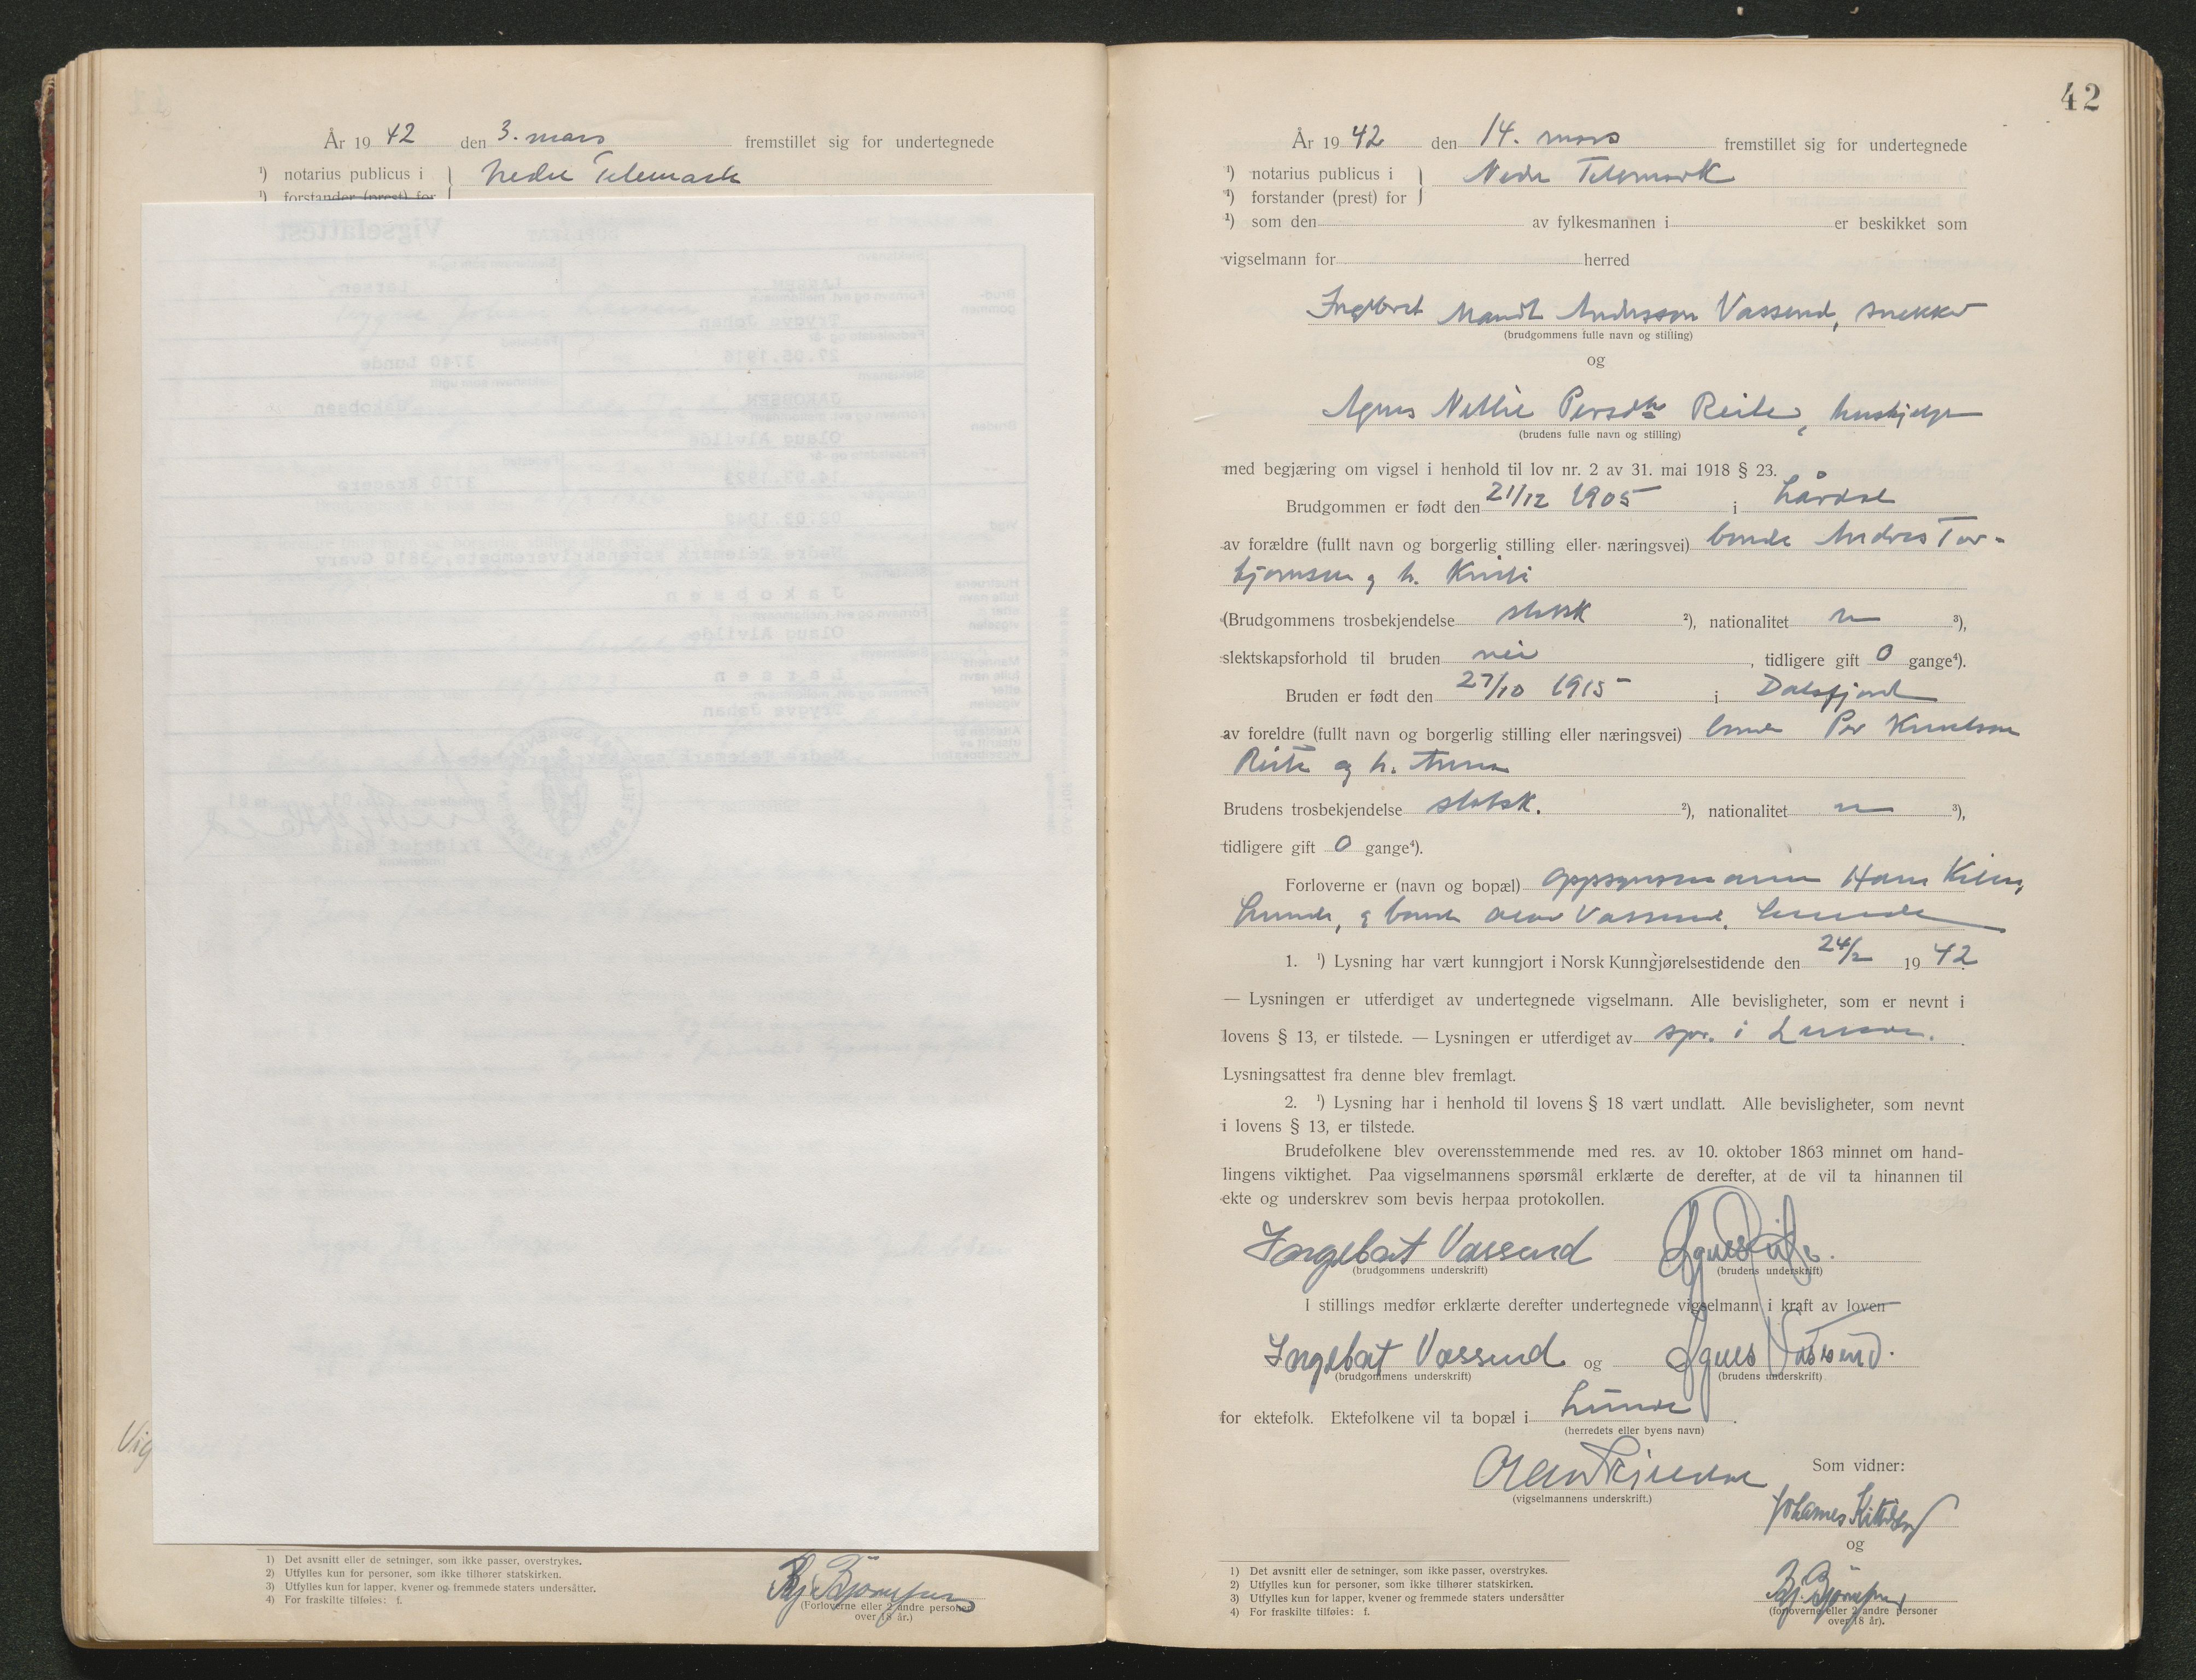 År 19 42 den 3. mars fremstillet sig for undertegnede
¹) notarius publicus i } Nedre Telemark
¹) forstander (prest) for
Vig
1) Det avsnitt eller de setninger, som ikke passer, overstrykes.
2) Utfylles kun for personer, som ikke tilhører statskirken.
3) Utfylles kun for lapper, kvener og fremmede staters undersåtter.
4) For fraskilte tilføies: f.
(Forloverne eller 2 andre personer
over 18 år.)
42
År 19 42 den 14. mars fremstillet sig for undertegnede
¹) notarius publicus i } Nedre Telemark
¹) forstander (prest) for
¹) som den av fylkesmannen i er beskikket som
vigselmann for herred
Ingebret Mandt Andresson Vassend, snekker
(brudgommens fulle navn og stilling)
og
Agnes Nellie Persdtr Reite, hushjelp
(brudens fulle navn og stilling)
med begjæring om vigsel i henhold til lov nr. 2 av 31. mai 1918 § 23.
Brudgommen er født den 21/12 1905 i Lårdal
av forældre (fullt navn og borgerlig stilling eller næringsvei) bonde Andres Tor-
bjørnsen og h. Kristi
(Brudgommens trosbekjendelse statsk ²), nationalitet n ³),
slektskapsforhold til bruden nei , tidligere gift 0 gange⁴).
Bruden er født den 27/10 1915 i Dalsfjord
av foreldre (fullt navn og borgerlig stilling eller næringsvei) bonde Per Knutson
Reite og h. Anna
Brudens trosbekjendelse statsk. ²), nationalitet n ³),
tidligere gift 0 gange⁴).
Forloverne er (navn og bopæl) oppsynsmann Hans
Lunde, og bonde Olav Vassend, Lunde
1. ¹) Lysning har vært kunngjort i Norsk Kunngjørelsestidende den 24/2 19 42.
— Lysningen er utferdiget av undertegnede vigselmann. Alle bevisligheter, som er nevnt i
lovens § 13, er tilstede. — Lysningen er utferdiget av spr. i Lunde.
Lysningsattest fra denne blev fremlagt.
2. ¹) Lysning har i henhold til lovens § 18 vært undlatt. Alle bevisligheter, som nevnt
i lovens § 13, er tilstede.
Brudefolkene blev overensstemmende med res. av 10. oktober 1863 minnet om hand-
lingens viktighet. Paa vigselmannens spørsmål erklærte de derefter, at de vil ta hinannen til
ekte og underskrev som bevis herpaa protokollen.
Ingebret Vassend Agnes Reite.
(brudgommens underskrift) (brudens underskrift)
I stillings medfør erklærte derefter undertegnede vigselmann i kraft av loven
Ingebret Vassend og Agnes Vassend.
(brudgommens underskrift) (brudens underskrift)
for ektefolk. Ektefolkene vil ta bopæl i Lunde .
(herredets eller byens navn)
Som vidner:
(vigselmannens underskrift.)
Johannes
og
(forloverne eller 2 andre personer
over 18 år).
1) Det avsnitt eller de setninger, som ikke passer, overstrykes.
2) Utfylles kun for personer, som ikke tilhører statskirken.
3) Utfylles kun for lapper, kvener og fremmede staters undersåtter
4) For fraskilte tilføies: f.